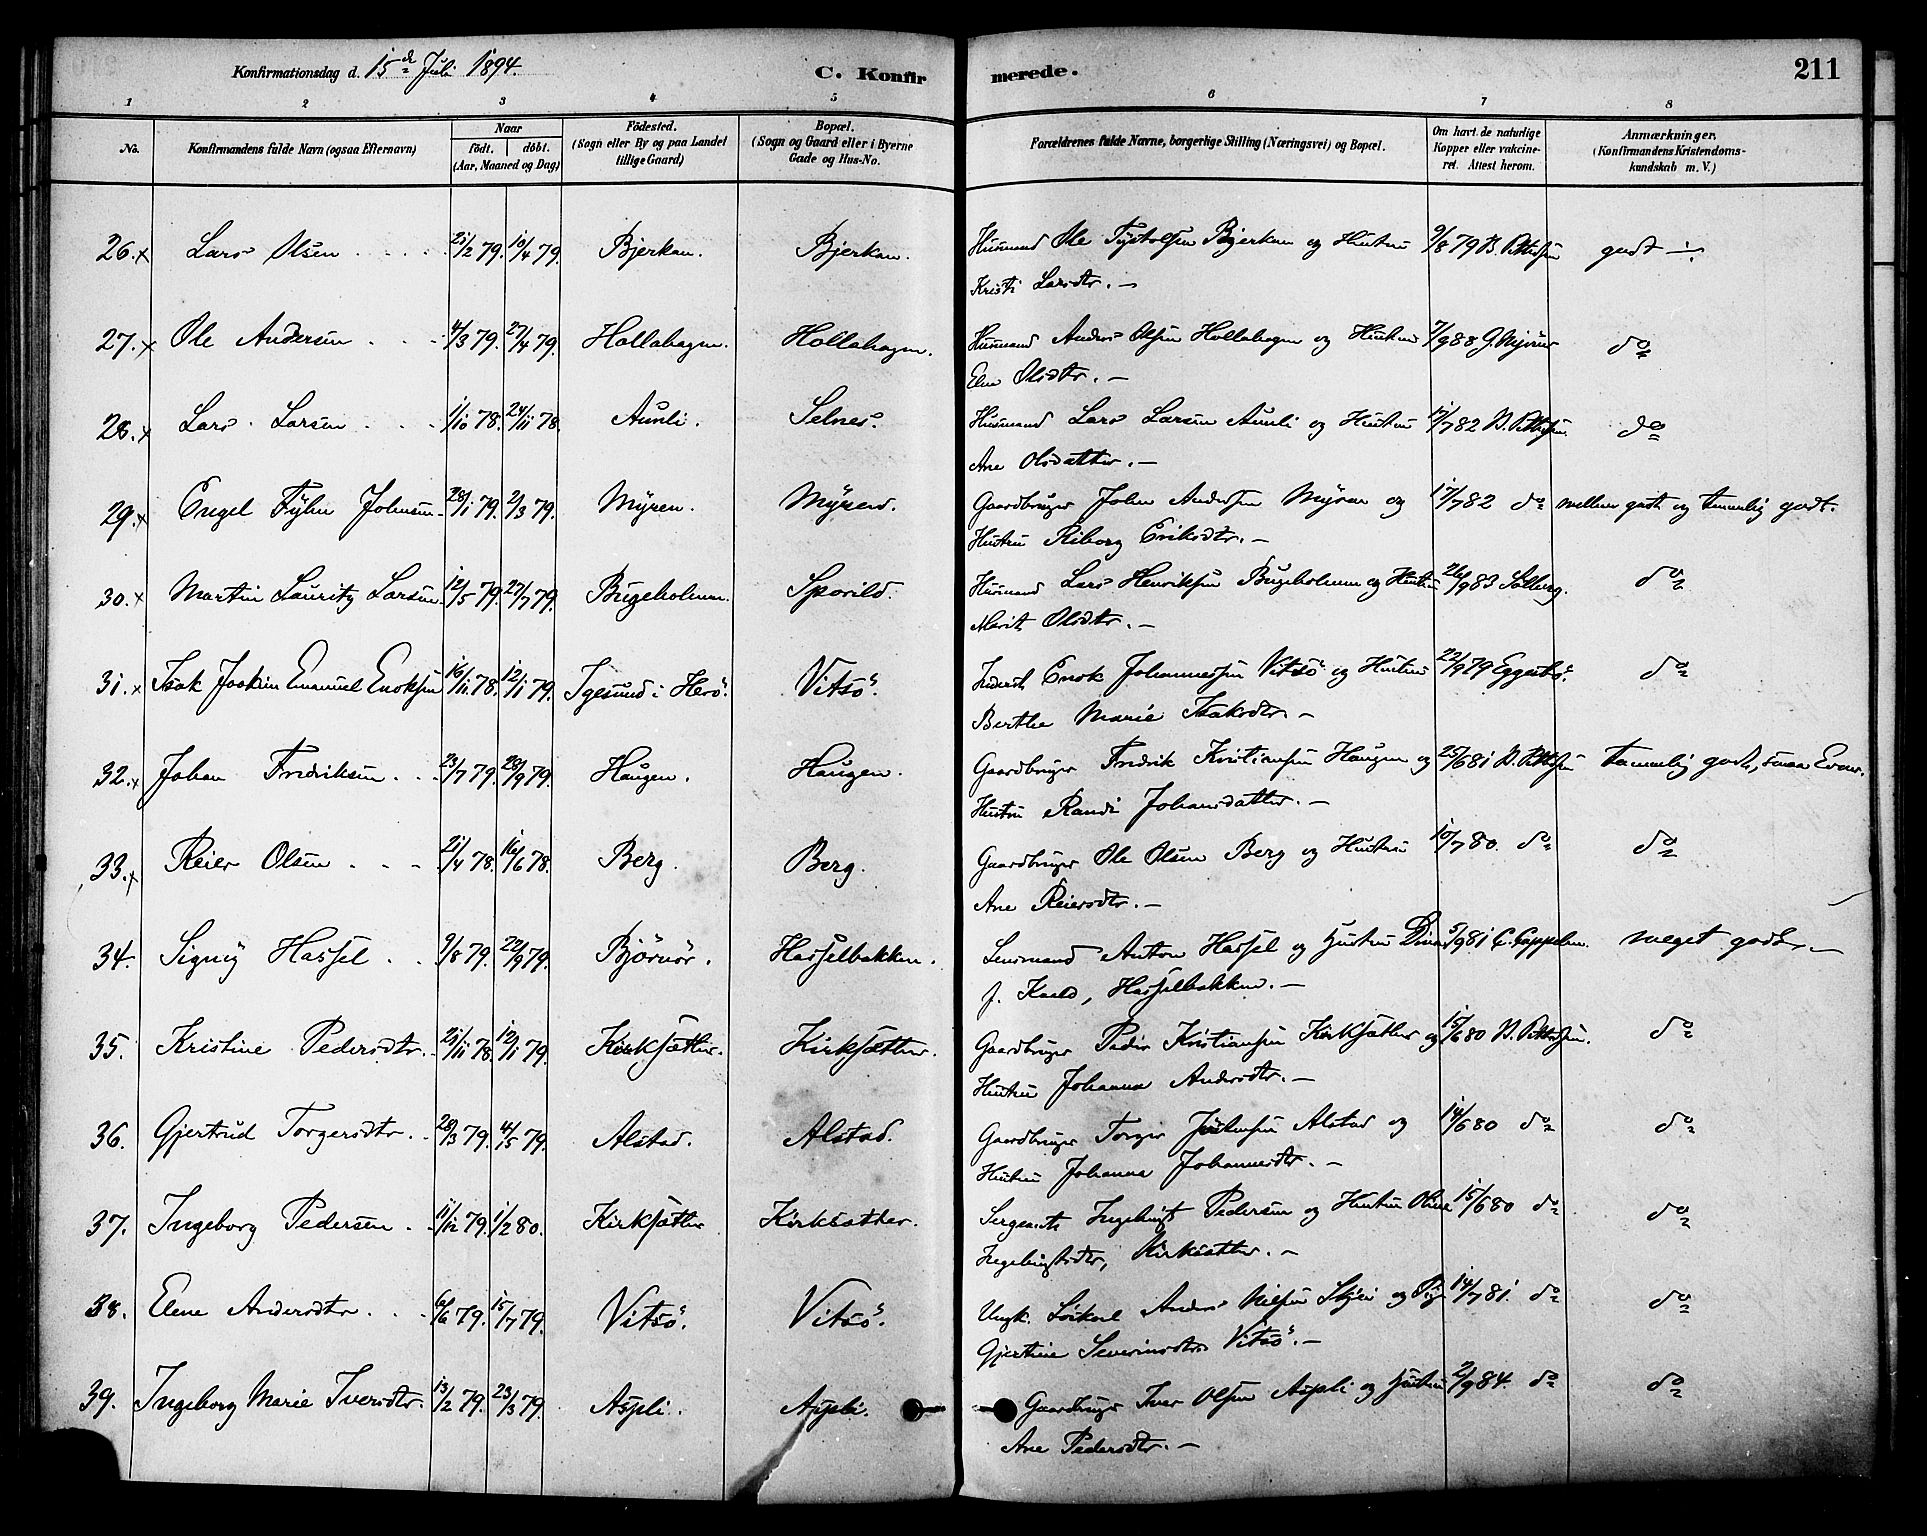 Konfirmationsdag d. 15de Juli 1894.
C. Konfir
merede.
211
1 2 3 4 5 6 7 8
No.
Konfirmandens fulde Navn (ogsaa Efternavn)
Naar
födt. döbt.
(Aar, Maaned og Dag)
Födested.
(Sogn eller By og paa Landet
tillige Gaard)
Bopæl.
(Sogn og Gaard eller i Byerne
Gade og Hus-No.
Forældrenes fulde Navne, borgerlige Stilling (Næringsvei) og Bopæl.
Om havt de naturlige
Kopper eller vakcine-
ret. Attest herom.
Anmærkninger.
(Konfirmandens Kristendoms-
kundskab m. V.)
26. x Lars Olsen 21/2 79. 10/4 79. Bjerkan. Bjerkan. Husmand Ole Bjerkan og Hustru 9/8 79 B. Pettersen godt
Kristi Larsdtr. —
27. x Ole Andersen 4/3 79. 27/4 79. Hollahagen. Hollahagen. Husmand Anders Olsen Hollahagen og Hustru 7/9 88 G. do
Olsdtr. —
28. x Lars Larsen 1/10 78. 24/11 78. Aunli. Selnes. Husmand Lars Larsen Aunli og Hustru 17/7 82 B. Pettersen. do
Ane Olsdatter. —
29. x Engel Fyhn Johnsen 28/1 79. 2/3 79. Myren. Myren. Gaardbruger John Andersen Myren og 17/7 82 do mellem godt og temmelig godt.
Hustru Riborg Eriksdtr. —
30. x Martin Lauritz Larsen 12/5 79. 27/7 79. Bugeholmen. Sporild. Husmand Lars Henriksen Bugeholmen og Hustru 26/9 83 Solberg. do
Marit Olsdtr. —
31. x Isak Joakim Emanuel Enoksen 16/11 78. 12/1 79. Igesund i Herö. Vitsö. Inderst Enok Johannessen Vitsö og Hustru 22/9 79 Eggesbö. do
Berthe Marie Isaksdtr. —
32. x Johan Fredriksen 23/7 79. 28/9 79. Haugen. Haugen. Gaardbruger Fredrik Kristiansen Haugen og 25/6 81 B. Pettersen temmelig godt, smaa Evner.
Hustru Randi Johansdatter. —
33. x Reier Olsen 21/4 78. 16/6 78. Berg. Berg. Gaardbruger Ole Olsen Berg og Hustru 10/7 80. do do
Ane Reiersdtr. —
34. Signy Hassel 9/8 79. 22/9 79. Björnör. Hasselbakken. Lensmand Anton Hassel og Hustru 5/9 81 C. Cappelen. meget godt. —
f. Hasselbakken. —
35. Kristine Pedersdtr. 21/11 78. 12/1 79. Kirksæther. Kirksæther. Gaardbruger Peder Kristiansen Kirksæther og 15/6 80 B. Pettersen. do
Hustru Johanna Andersdtr. —
36. Gjertrud Torgersdtr. 28/3 79. 4/5 79. Alstad. Alstad. Gaardbruger Torger Alstad og 14/6 80 do do
Hustru Johanna Johannesdtr. —
37. Ingeborg Pedersen 11/12 79. 1/2 80. Kirksæther Kirksæther. Sergeant Ingebrigt Pedersen og Hustru Oline 15/6 80 do do
Ingebrigtsdtr, Kirksæther. —
38. Elene Andersdtr 6/6 79. 15/7 79. Vitsö. Vitsö. Ungk. Anders Nilsen Skjei og Pige 14/7 81. do do
Gjertine Severinsdtr Vitsö. —
39. Ingeborg Marie Iversdtr. 13/2 79. 23/3 79. Aspli. Aspli. Gaardbruger Iver Olsen Aspli og Hustru 2/9 84. do do
Ane Pedersdtr. —